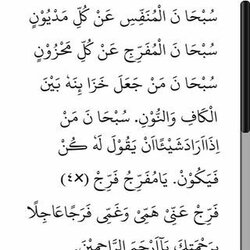 سُبْحَا نَ الْمُنَفِّسِ عَنْ كُلِّ مَدْيُوْنٍ
سُبْحَا نَ الْمُفَرِّجِ عَنْ كُلِّ مَحْزُوْنٍ
سُبْحَا نَ مَنْ جَعَلَ خَزَا ئِنَهٗ بَيْنَ
الْكَافِ وَالنُّوْنِ. سُبْحَا نَ مَنْ
اِذَااَرَادَشَيْئًااَنْ يَقُوْلَ لَهٗ كُنْ
فَيَكُوْنُ. يَامُفَرِّجُ فَرِّجْ (×٤)
فَرِّجْ عَنِّىْ هَمِّىْ وَغَمِّى فَرَجًاعَاجِلًا
بِرَحْمَتِكَ يَااَرْحَمَ الرَّاحِمِيْنَ.